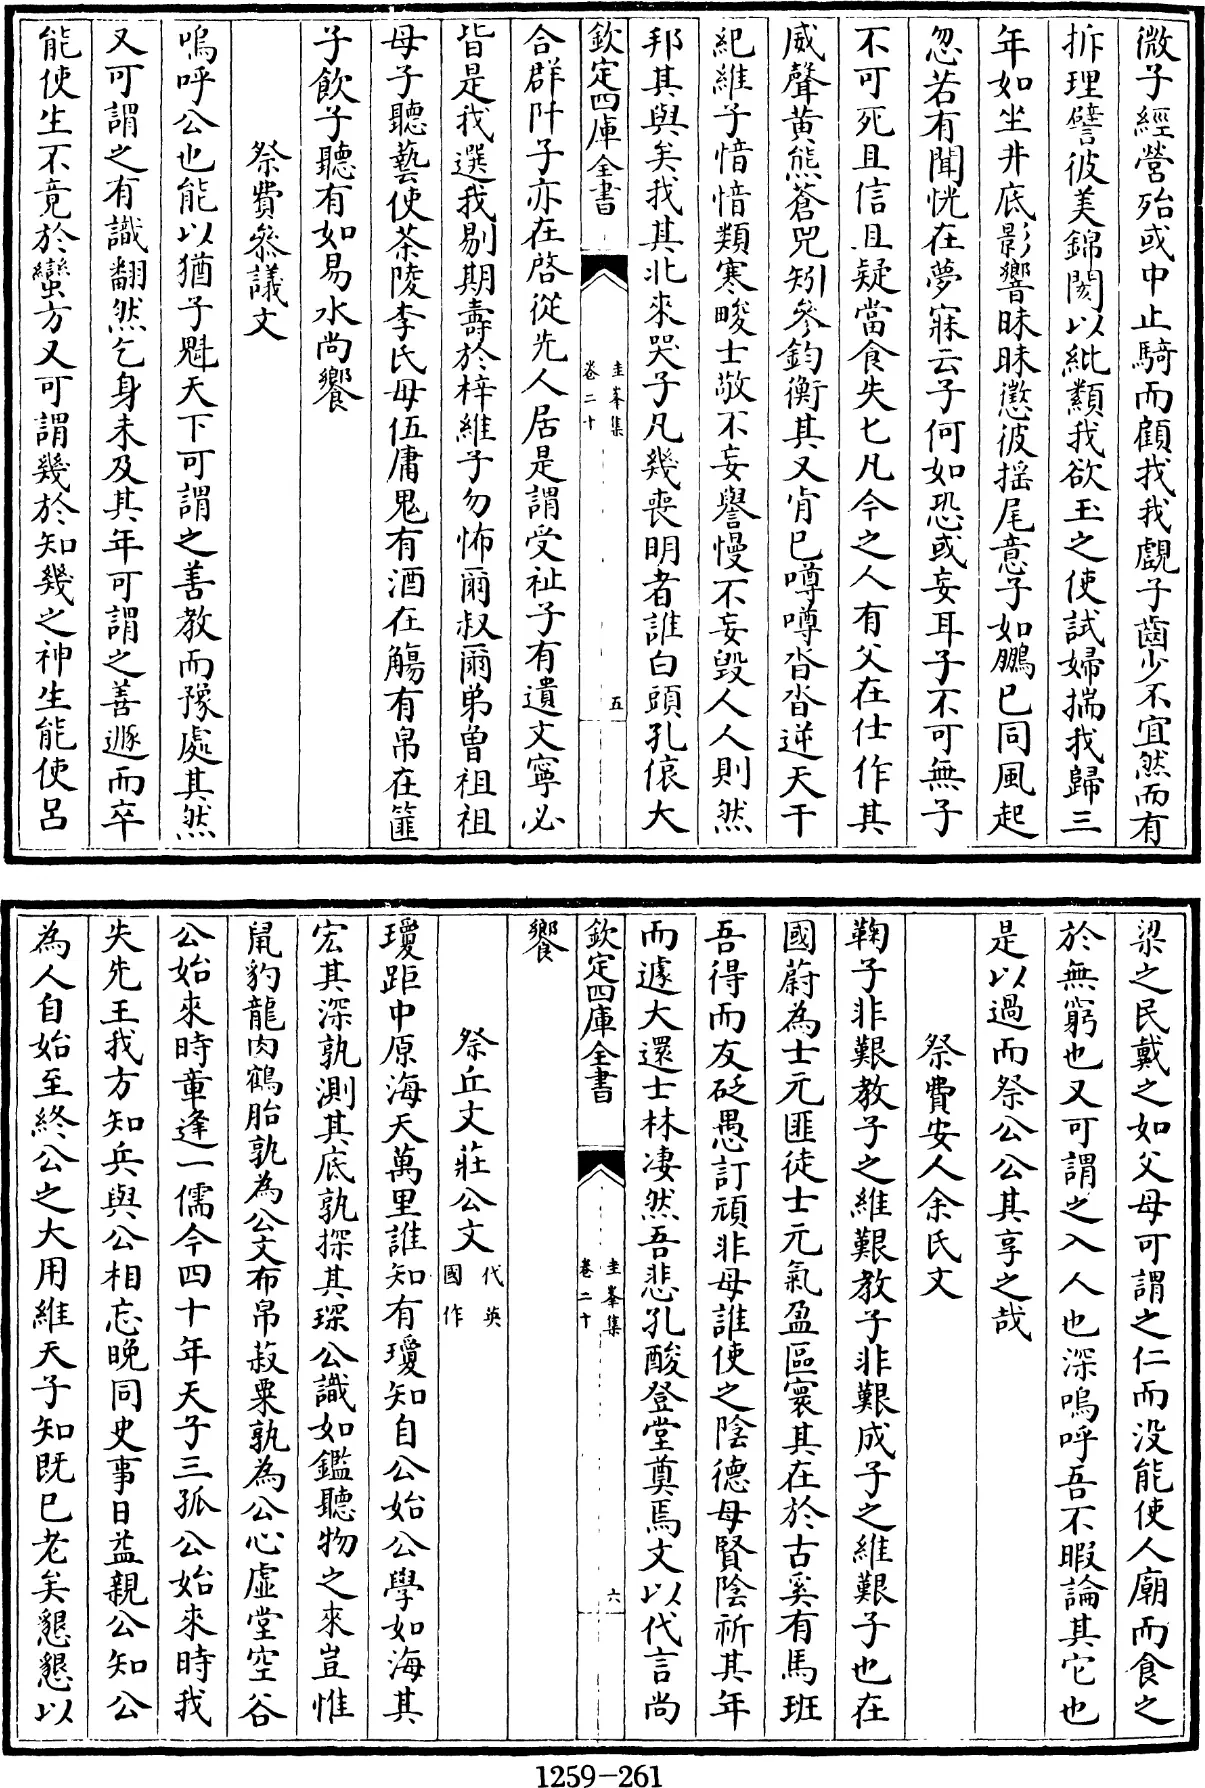 微子經營殆或中止騎而顧我我覷子齒少不宜然而有
拆理譬彼美錦閡以紕纇我欲玉之使試婦揣我歸三
年如坐井底影響昧昧懲彼揺尾意子如鵬已同風起
忽若有聞恍在夢寐云子何如恐或妄耳子不可無子
不可死且信且疑當食失匕凡今之人有父在仕作其
威聲黄熊蒼兕矧參鈞衡其又肯已噂噂沓沓逆天干
紀維子愔愔類寒畯士敬不妄譽慢不妄毀人人則然
邦其與矣我其北來哭子凡幾喪明者誰白頭孔懷大
欽定四庫全書
圭峯集
卷二十
五
合群阡子亦在啓從先人居是謂受祉子有遺文寧必
皆是我選我剔期壽於梓維子勿怖爾叔爾弟曾祖祖
母子聽藝使茶陵李氏母伍庸鬼有酒在觴有帛在篚
子飲子聽有如易水尚饗
祭費叅議文
嗚呼公也能以猶子魁天下可謂之善教而豫處其然
又可謂之有識翻然乞身未及其年可謂之善遯而卒
能使生不竟於蠻方又可謂幾於知幾之神生能使呂
梁之民戴之如父母可謂之仁而没能使人廟而食之
於無窮也又可謂之入人也深嗚呼吾不暇論其它也
是以過而祭公公其享之哉
祭費安人余氏文
鞠子非艱教子之維艱教子非艱成子之維艱子也在
國蔚為士元匪徒士元氣盈區寰其在於古奚有馬班
吾得而友砭愚訂頑非母誰使之陰德母賢陰祈其年
而遽大還士林凄然吾悲孔酸登堂奠焉文以代言尚
欽定四庫全書
圭峯集
卷二十
六
饗
祭丘文莊公文代英國作
瓊距中原海天萬里誰知有瓊知自公始公學如海其
宏其深孰測其底孰探其琛公識如鑑聽物之來豈惟
鼠豹龍肉鶴胎孰為公文布帛菽粟孰為公心虛堂空谷
公始來時童逢一儒今四十年天子三孤公始來時我
失先王我方知兵與公相忘晚同史事日益親公知公
為人自始至終公之大用維天子知既已老矣懇懇以
1259-261